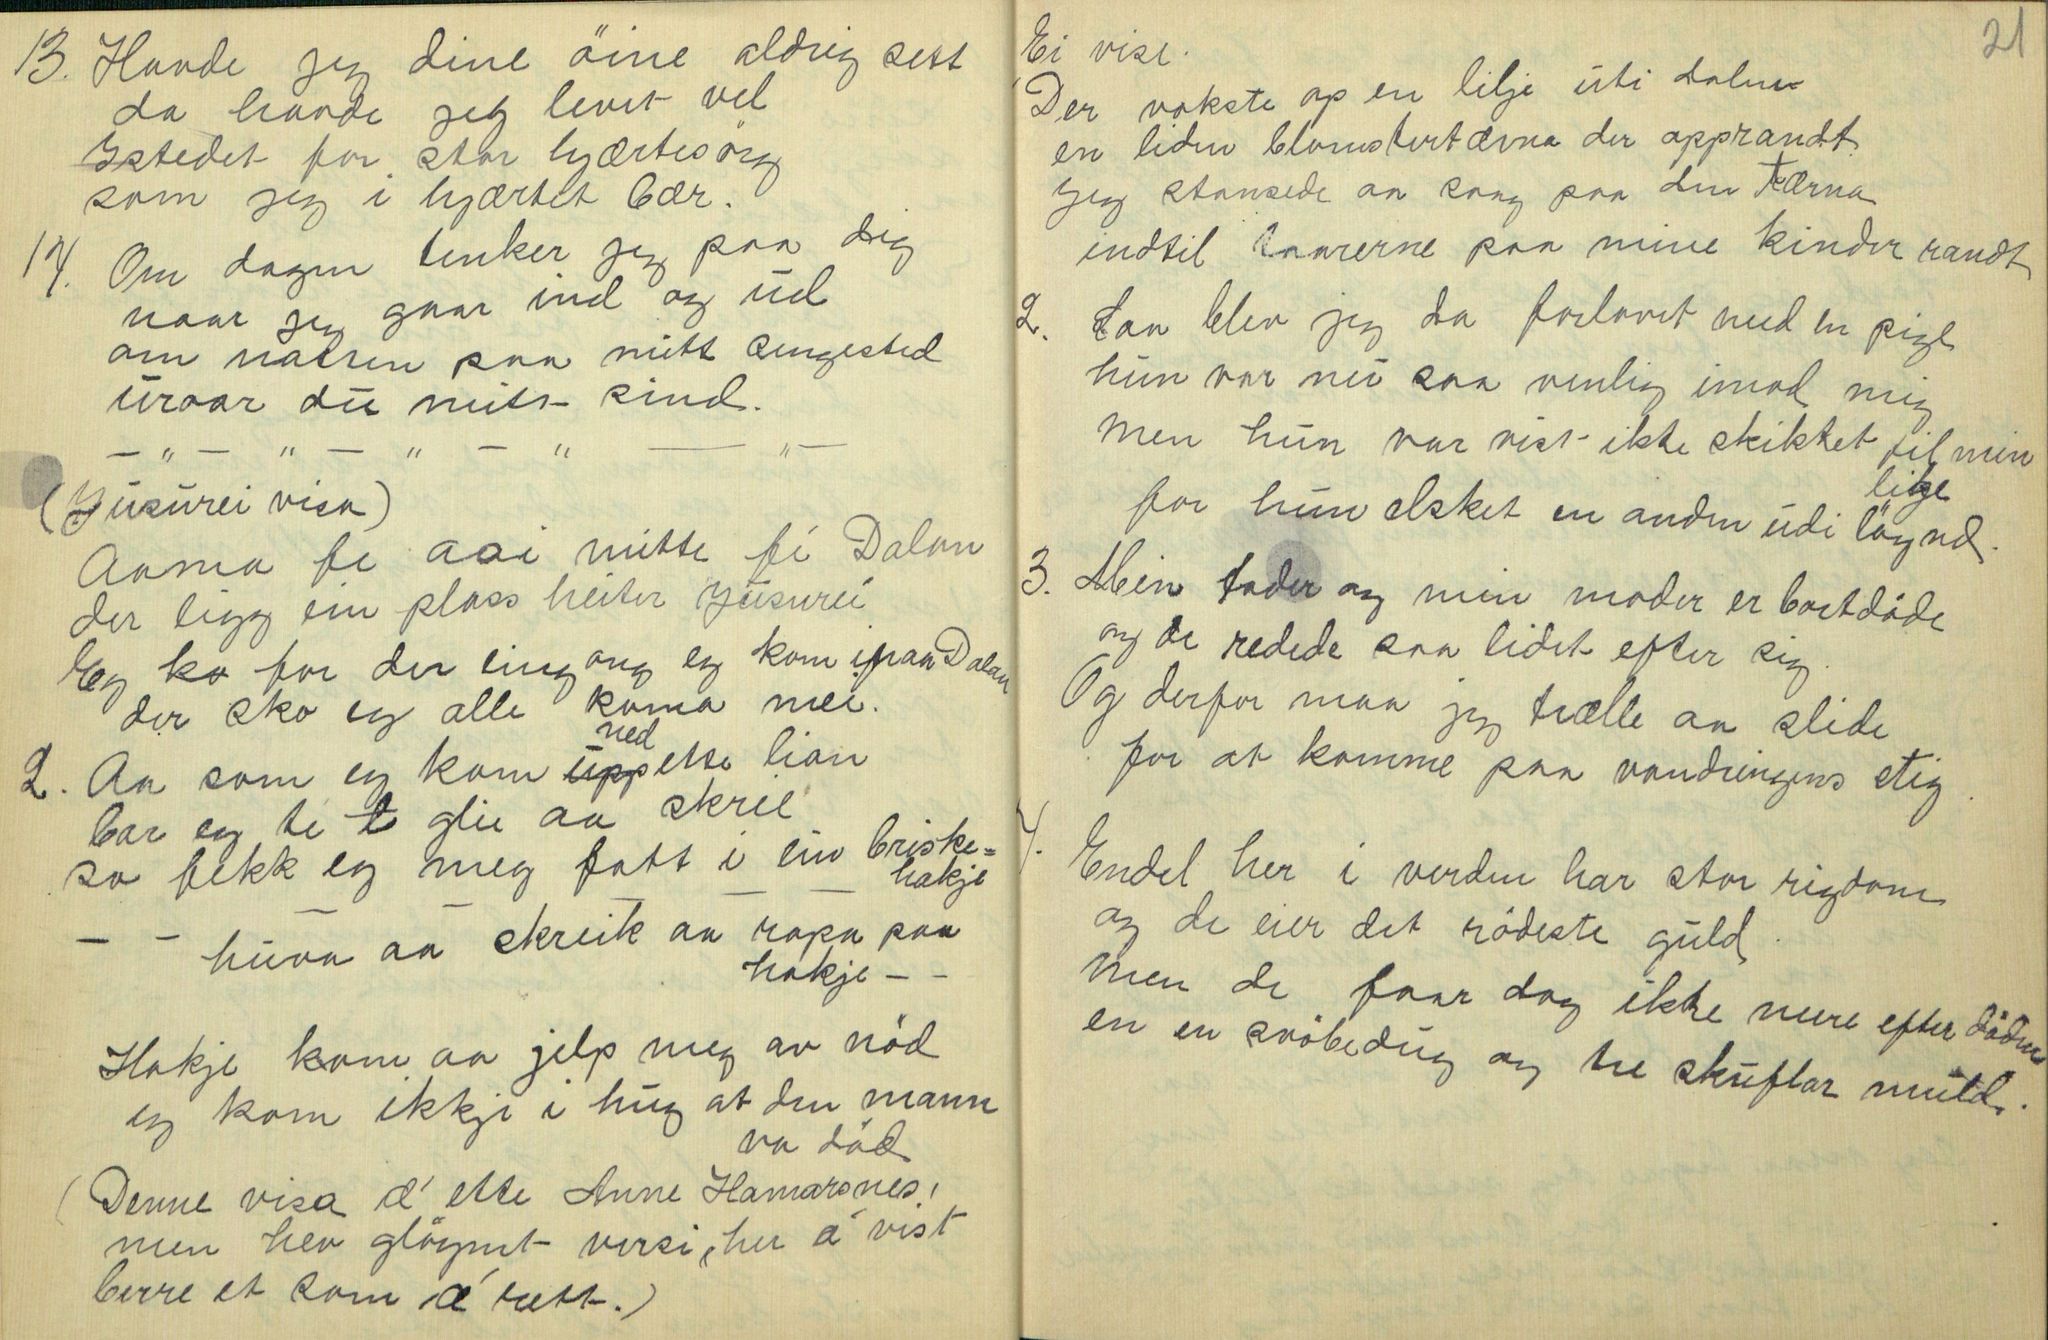 13. Havde jeg dine öine aldrig sett
da havde jeg levet vel
Istedet for stor hjærtesörg
som jeg i hjærtet bær.
14. Om dagen tenker jeg paa dig
naar jeg gaar ind og ud
om natten paa mitt sengested
uroar du mitt sind.
— „ — „ — „ — „ — „ —
(Jusurei visa)
Aama fe aai mitte fi Dalan
der ligg ein plass heiter Jusurei
Eg ko for der eingong eg kom ifraa Dalan
der sko eg alle koma mei.
2. Aa som eg kom ned upp ette lian
bar eg te glie aa skrei
so fekk eg meg fatt i ein briske=
hakje
— — — — — — —
huva aa skreik aa ropa paa
hakje — —
Hakje kom aa jelp meg av nöd
eg kom ikkje i hug at den mann
va död
(Denne visa æ' ette Anne Hamarsnes,
men hev glöymt versi, her æ' vist
berre et som æ' rett.)
21
Ei vise.
Der vokste op en lilje uti dalen
en liden blomstertærna der opprandt
jeg stansede aa saag paa den tærna
indtil taarerne paa mine kinder randt
2. Saa blev jeg da forlovet med en pige
hun var nu saa venlig imod mig
men hun var vist ikke skikket til min
lige
for hun elsket en anden udi löynd.
3. Min fader og min moder er bortdöde
og de redede saa lidet efter sig.
Og derfor maa jeg trælle aa slide
for at komme paa vandringens stig.
4. Endel her i verden har stor rigdom
og de eier det rödeste guld.
men de faar dog ikke mere efter döden
en en svöbedug og tre skuflar muld.